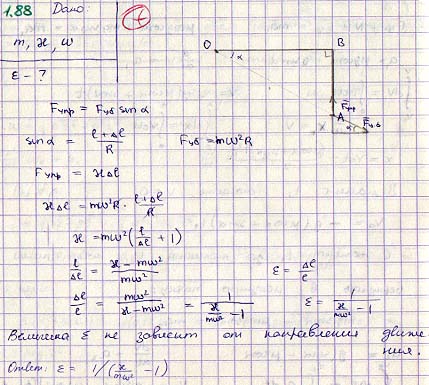 1.88 Дано:
m, ϰ, ω
ε - ?
O α B
A F̄упр
α F̄цб
Fупр = Fцб sin α
sin α = (ℓ + Δℓ)/R Fцб = mω²R
Fупр = ϰΔℓ
ϰΔℓ = mω²R · (ℓ + Δℓ)/R
ϰ = mω²(ℓ/Δℓ + 1)
ℓ/Δℓ = (ϰ - mω²)/mω² ε = Δℓ/ℓ
Δℓ/ℓ = mω²/(ϰ - mω²) = 1/(ϰ/mω² - 1) ε = 1/(ϰ/mω² - 1)
Величина ε не зависит от направления движе
ния.
Ответ: ε = 1/(ϰ/mω² - 1)